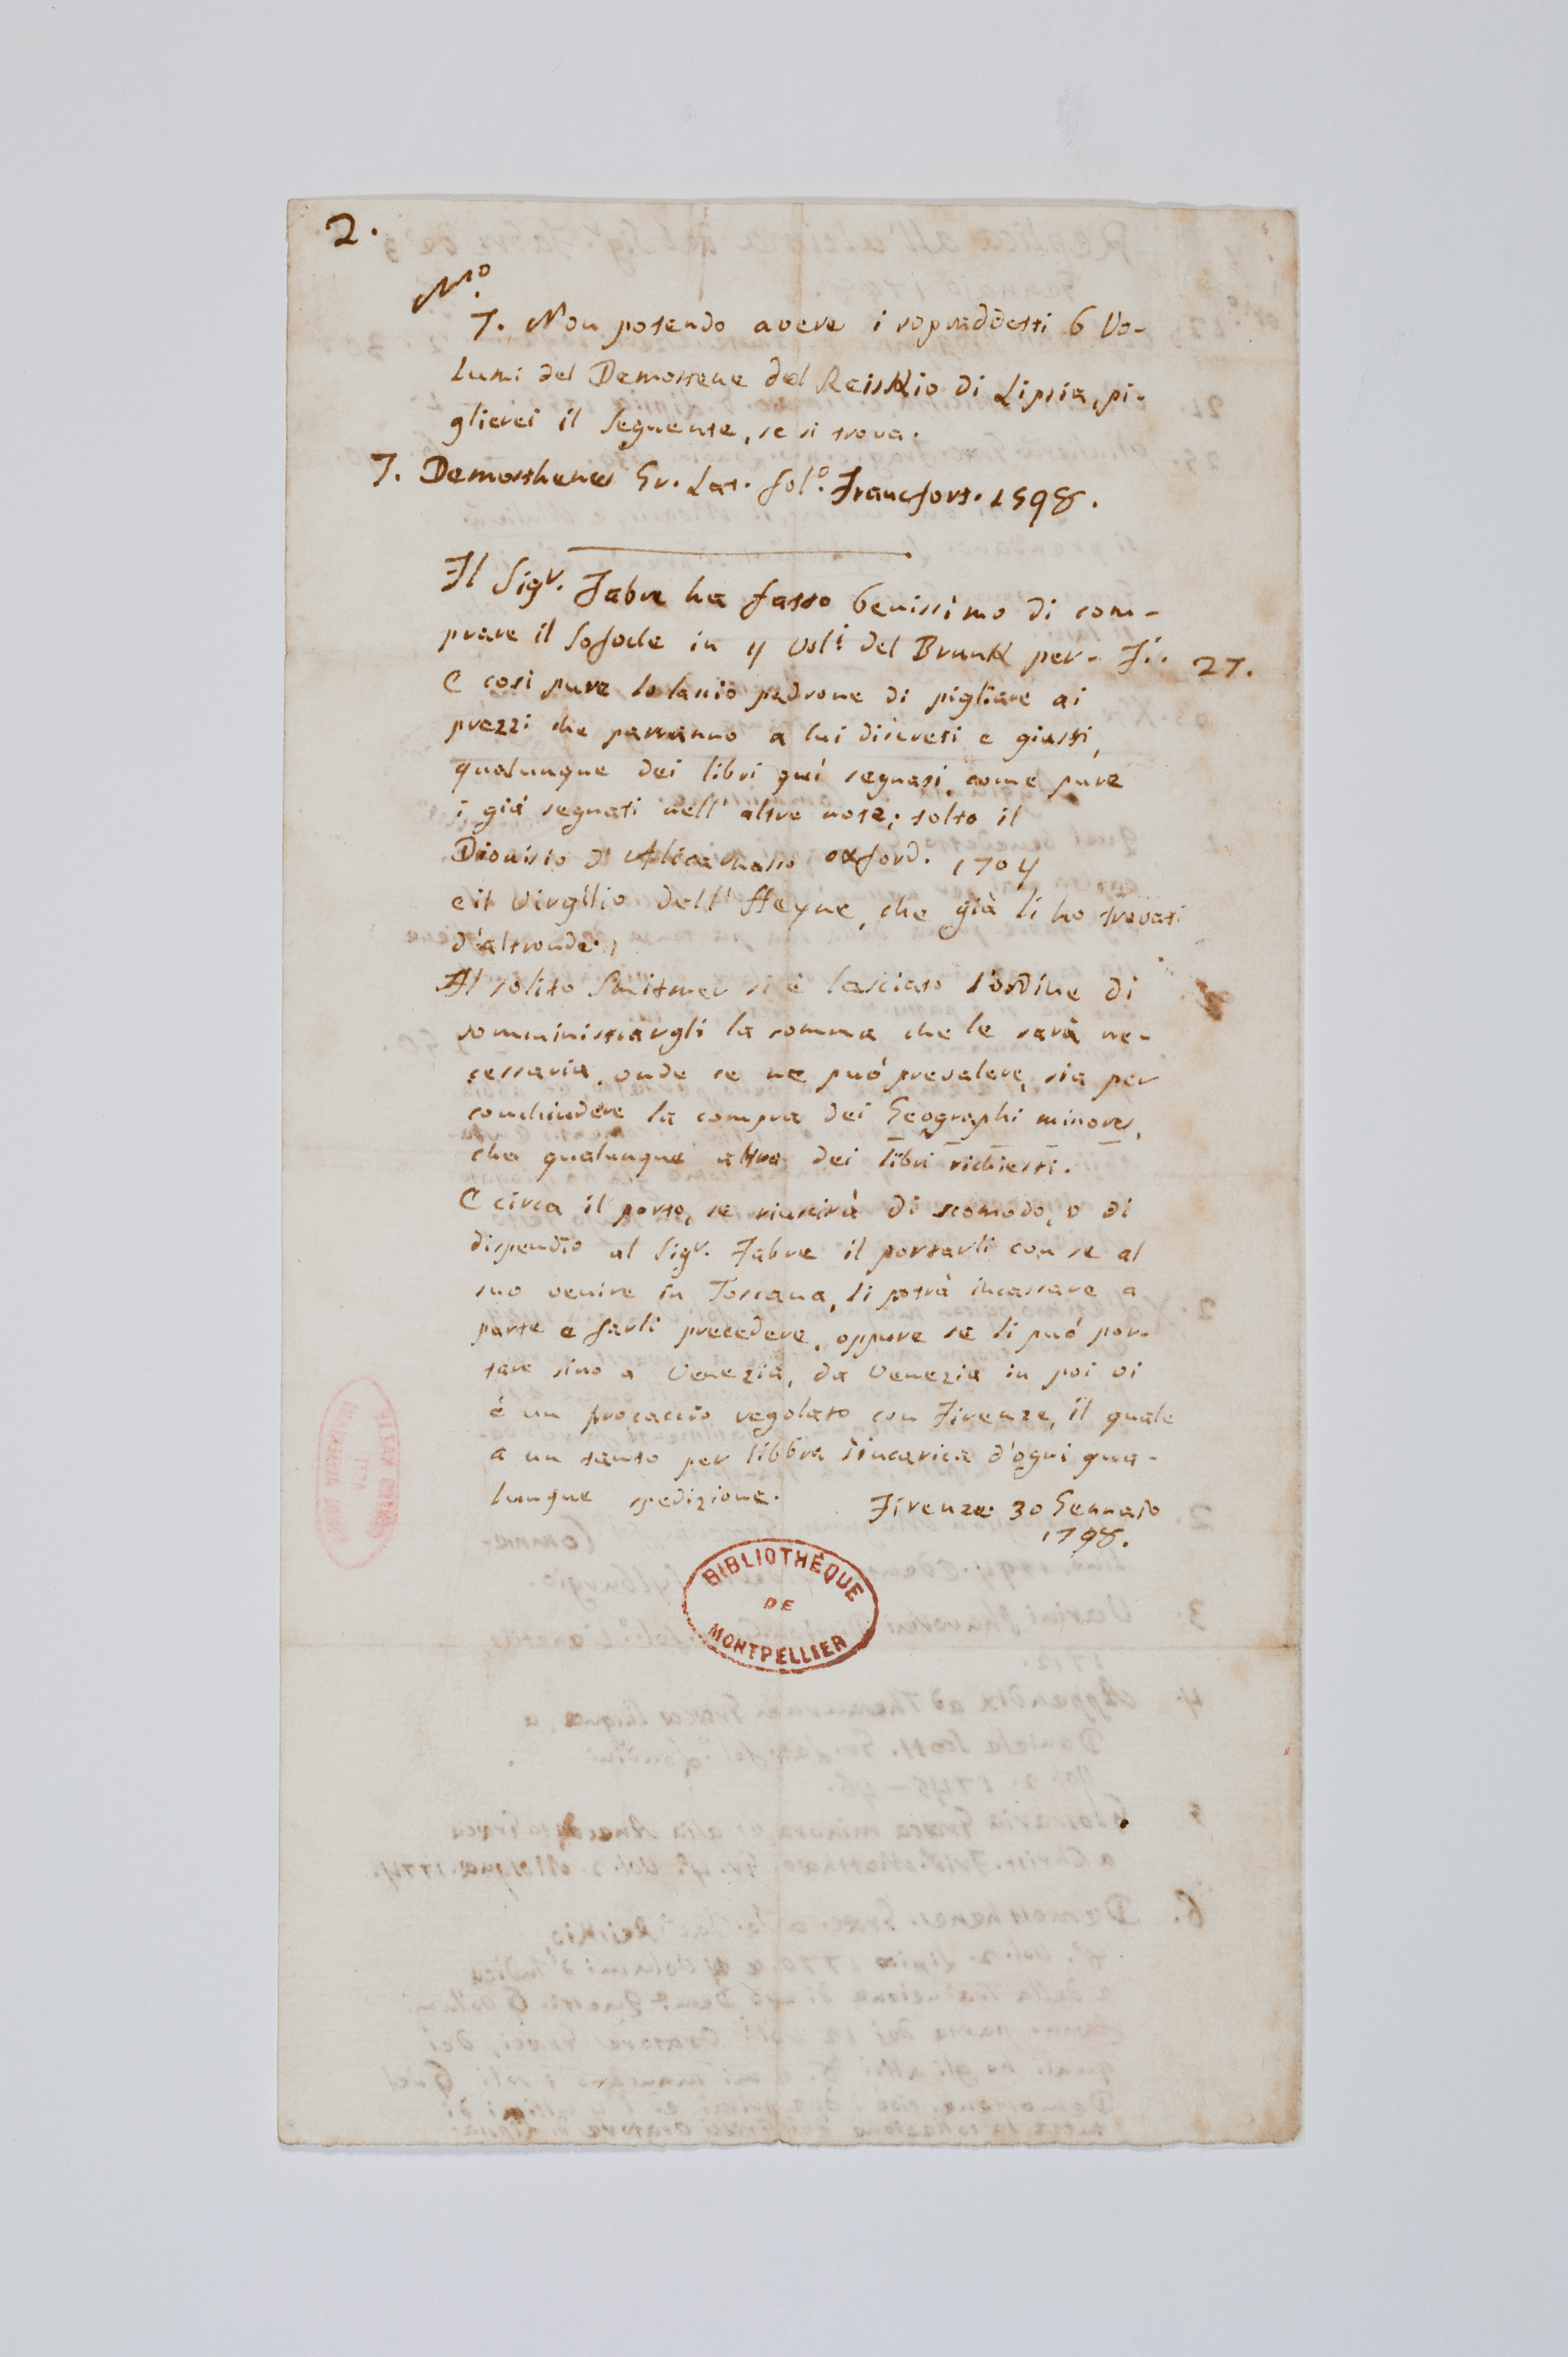 2.
Nº.
7. Non potendo avere i sopraddetti 6 Vo-
lumi del Demostene del Reiskio di Lipsia, pi-
glierei il seguente, se si trova.
7. Demosthenes Gr. Lat. fol.º Francfort. 1598.
Il Sigr. Fabre ha fatto benissimo di com-
prare il Sofocle in 4 Voli. del Brunk per- Fi. 27.
E così pure lo lascio padrone di pigliare ai
prezzi che parranno a lui discreti e giusti,
qualunque dei libri quì segnati, come pure
i già segnati nell' altre note; tolto il
Dionisio d'Alicarnasso oxford. 1704
e il Virgilio dell' Heyne, che già li ho trovati
d'altronde.
Al solito Smitmer si è lasciato l'ordine di
somministrargli la somma che le sarà ne-
cessaria, onde se ne può prevalere, sia per
conchiudere la compra dei Geographi minores,
che qualunque altro dei libri richiesti.
E circa il porto, se riuscirà di scomodo, o di
dispendio al Sigr. Fabre il portarli con se al
suo venire in Toscana, li potrà incassare a
parte e farli precedere, oppure se li può por-
tare sino a Venezia, da Venezia in poi vi
è un procaccio regolato con Firenze, il quale
a un tanto per libbra s'incarica d'ogni qua-
lunque spedizione.
Firenze. 30 Gennaio
1798.
BIBLIOTHÈQUE
DE
MONTPELLIER